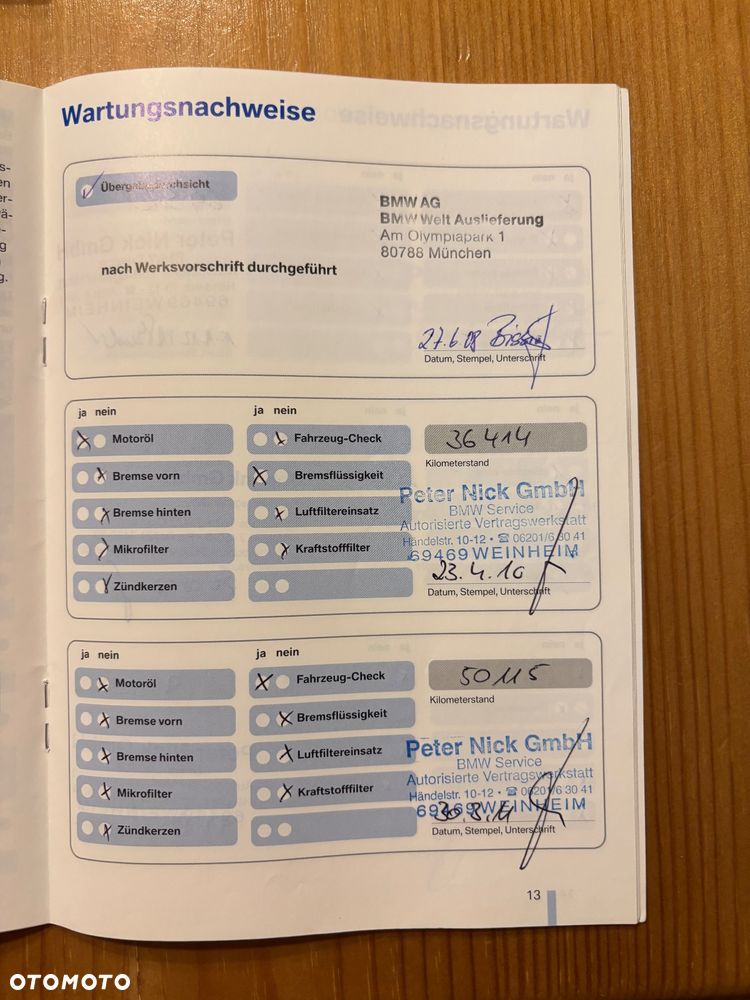 Wartungsnachweise
Übergabedurchsicht
BMW AG
BMW Welt Auslieferung
Am Olympiapark 1
80788 München
nach Werksvorschrift durchgeführt
27.6.08
Datum, Stempel, Unterschrift
ja nein
ja nein
Motoröl
Fahrzeug-Check
36414
Kilometerstand
Bremse vorn
Bremsflüssigkeit
Bremse hinten
Luftfiltereinsatz
Mikrofilter
Kraftstofffilter
Zündkerzen
Peter Nick GmbH
BMW Service
Autorisierte Vertragswerkstatt
Händelstr. 10-12 • ☎ 06201/6 30 41
69469 WEINHEIM
23.4.10
Datum, Stempel, Unterschrift
ja nein
ja nein
Motoröl
Fahrzeug-Check
50115
Kilometerstand
Bremse vorn
Bremsflüssigkeit
Bremse hinten
Luftfiltereinsatz
Mikrofilter
Kraftstofffilter
Zündkerzen
Peter Nick GmbH
BMW Service
Autorisierte Vertragswerkstatt
Händelstr. 10-12 • ☎ 06201/6 30 41
69469 WEINHEIM
30.3.11
Datum, Stempel, Unterschrift
13
OTOMOTO